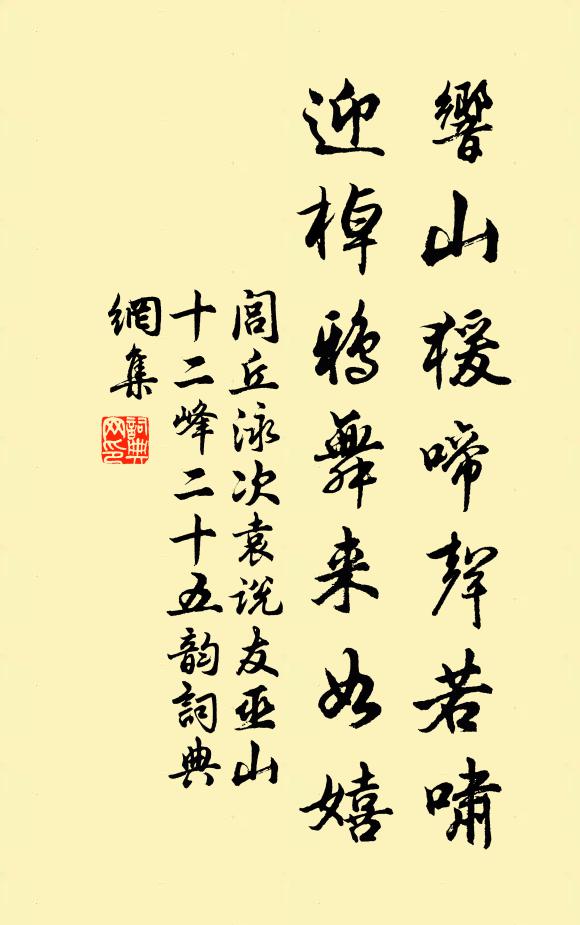 響山猨啼聲若嘯
迎棹鴉舞来如嬉
閭丘泳次袁説友巫山
十二峰二十五韵詞典
網集
詞典
网印